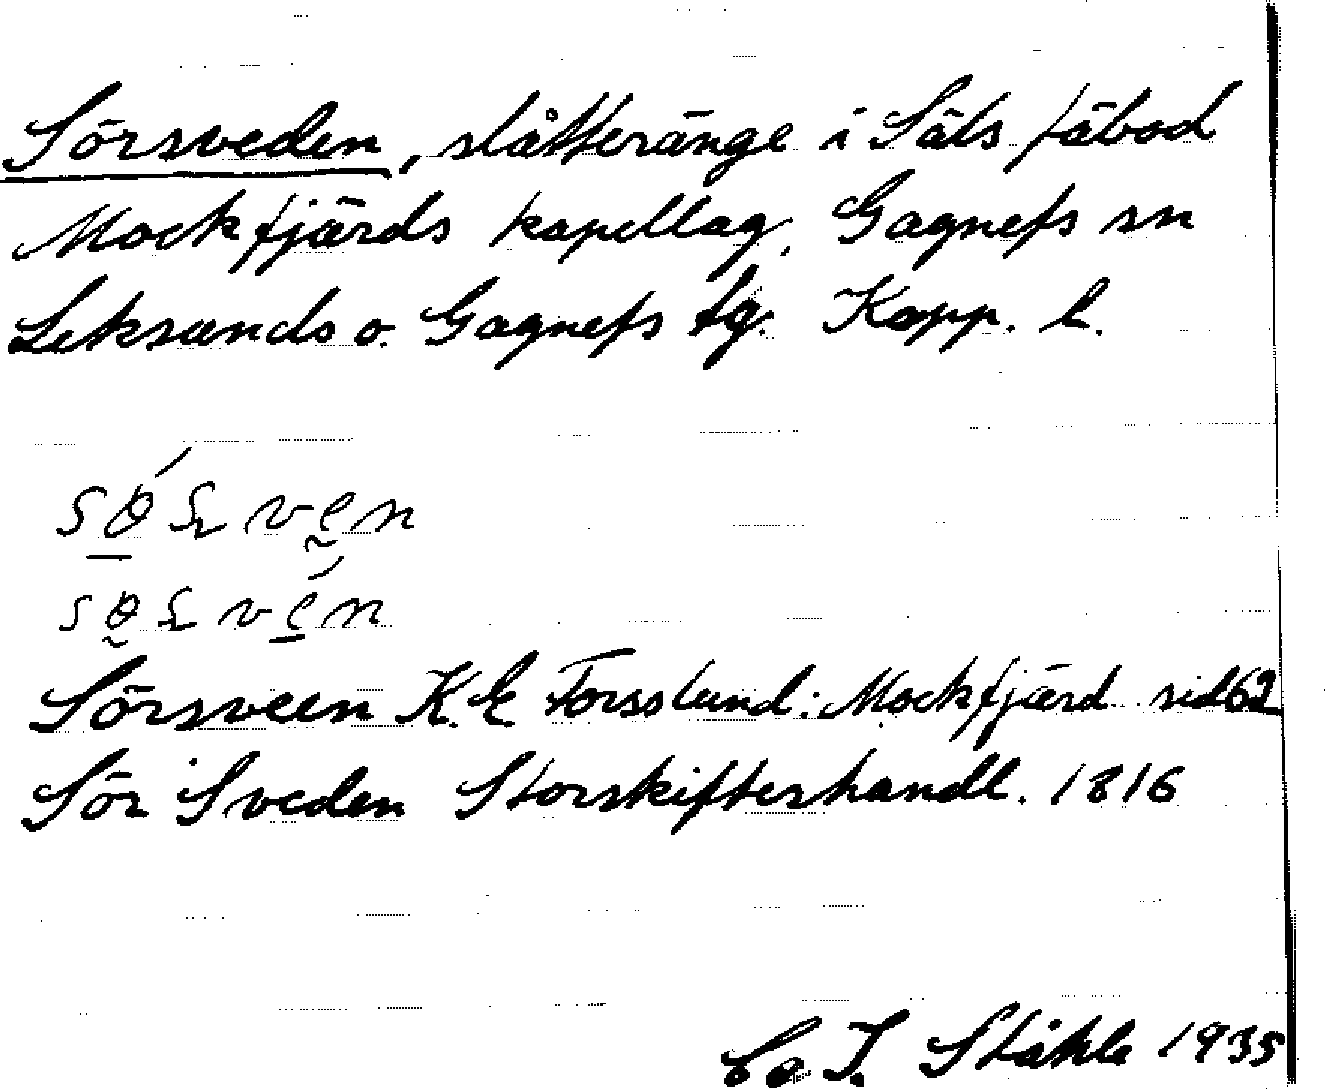 Sörsveden, slåtteränge i Säls fäbod
Mockfjärds kapellag, Gagnefs sn
Leksands o. Gagnefs tg. Kopp. l.
Sörsveen K. E Forsslund: Mockfjärd sid 62
Sör Sveden Storskifteshandl. 1816
C. I. Ståhle 1935